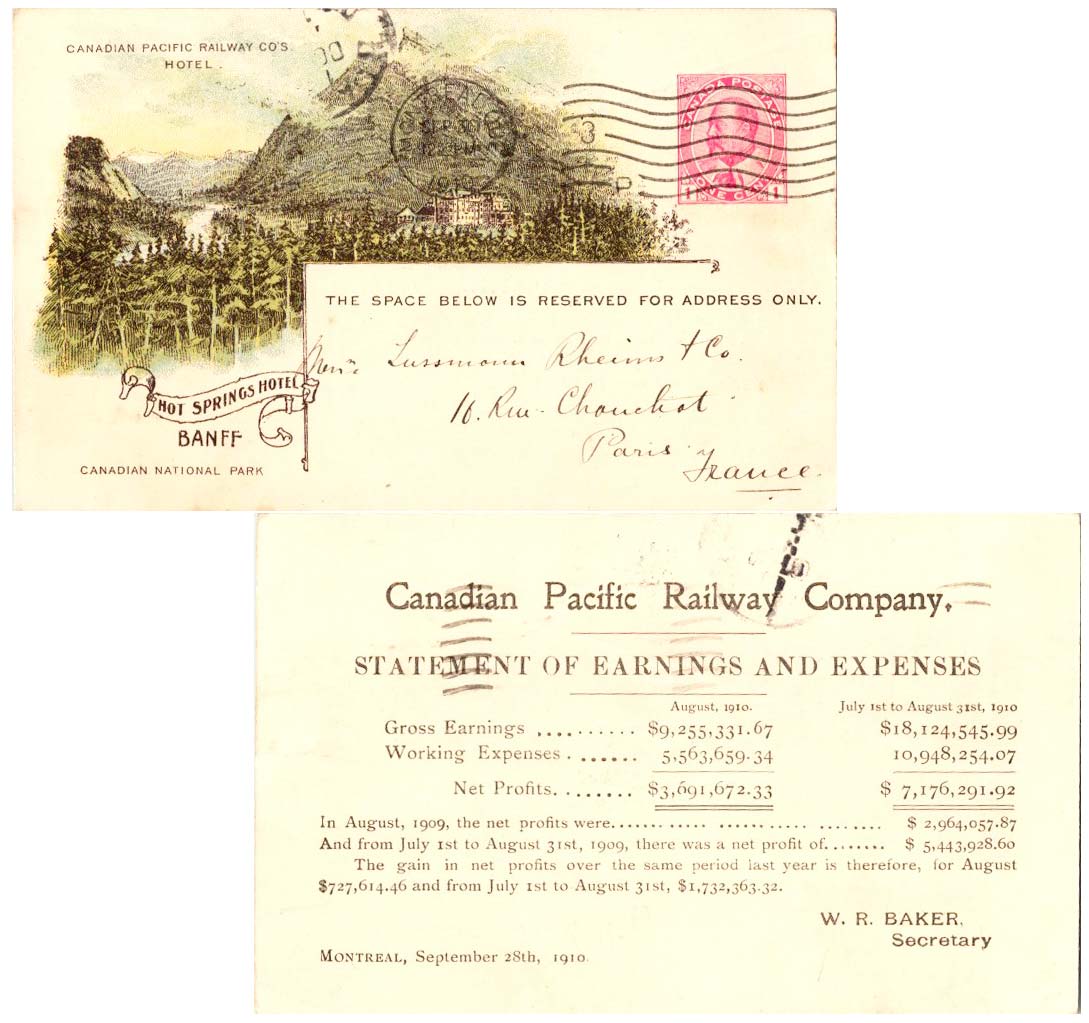 CANADIAN PACIFIC RAILWAY CO'S.
HOTEL.
CANADA POSTAGE
1 ONE CENT 1
THE SPACE BELOW IS RESERVED FOR ADDRESS ONLY.
Lussmann Rheims & Co.
16. Rue Chauchat
Paris
France.
HOT SPRINGS HOTEL
BANFF
CANADIAN NATIONAL PARK
Canadian Pacific Railway Company.
STATEMENT OF EARNINGS AND EXPENSES
August, 1910. July 1st to August 31st, 1910
Gross Earnings .......... $9,255,331.67 $18,124,545.99
Working Expenses ....... 5,563,659.34 10,948,254.07
Net Profits........ $3,691,672.33 $ 7,176,291.92
In August, 1909, the net profits were...... ..... ...... ..... ........ $ 2,964,057.87
And from July 1st to August 31st, 1909, there was a net profit of........ $ 5,443,928.60
The gain in net profits over the same period last year is therefore, for August
$727,614.46 and from July 1st to August 31st, $1,732,363.32.
W. R. BAKER,
Secretary
MONTREAL, September 28th, 1910.